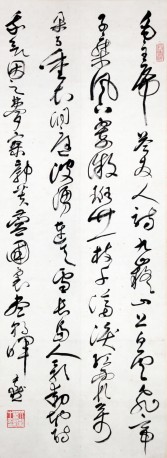 毛主席答友人詩九嶷山上白雲飛帝
子乘風下翠微斑竹一枝千滴淚紅霞萬
朵百重衣洞庭波湧連天雪長島人歌動地詩
我欲因之夢寥廓芙蓉國裏盡朝暉